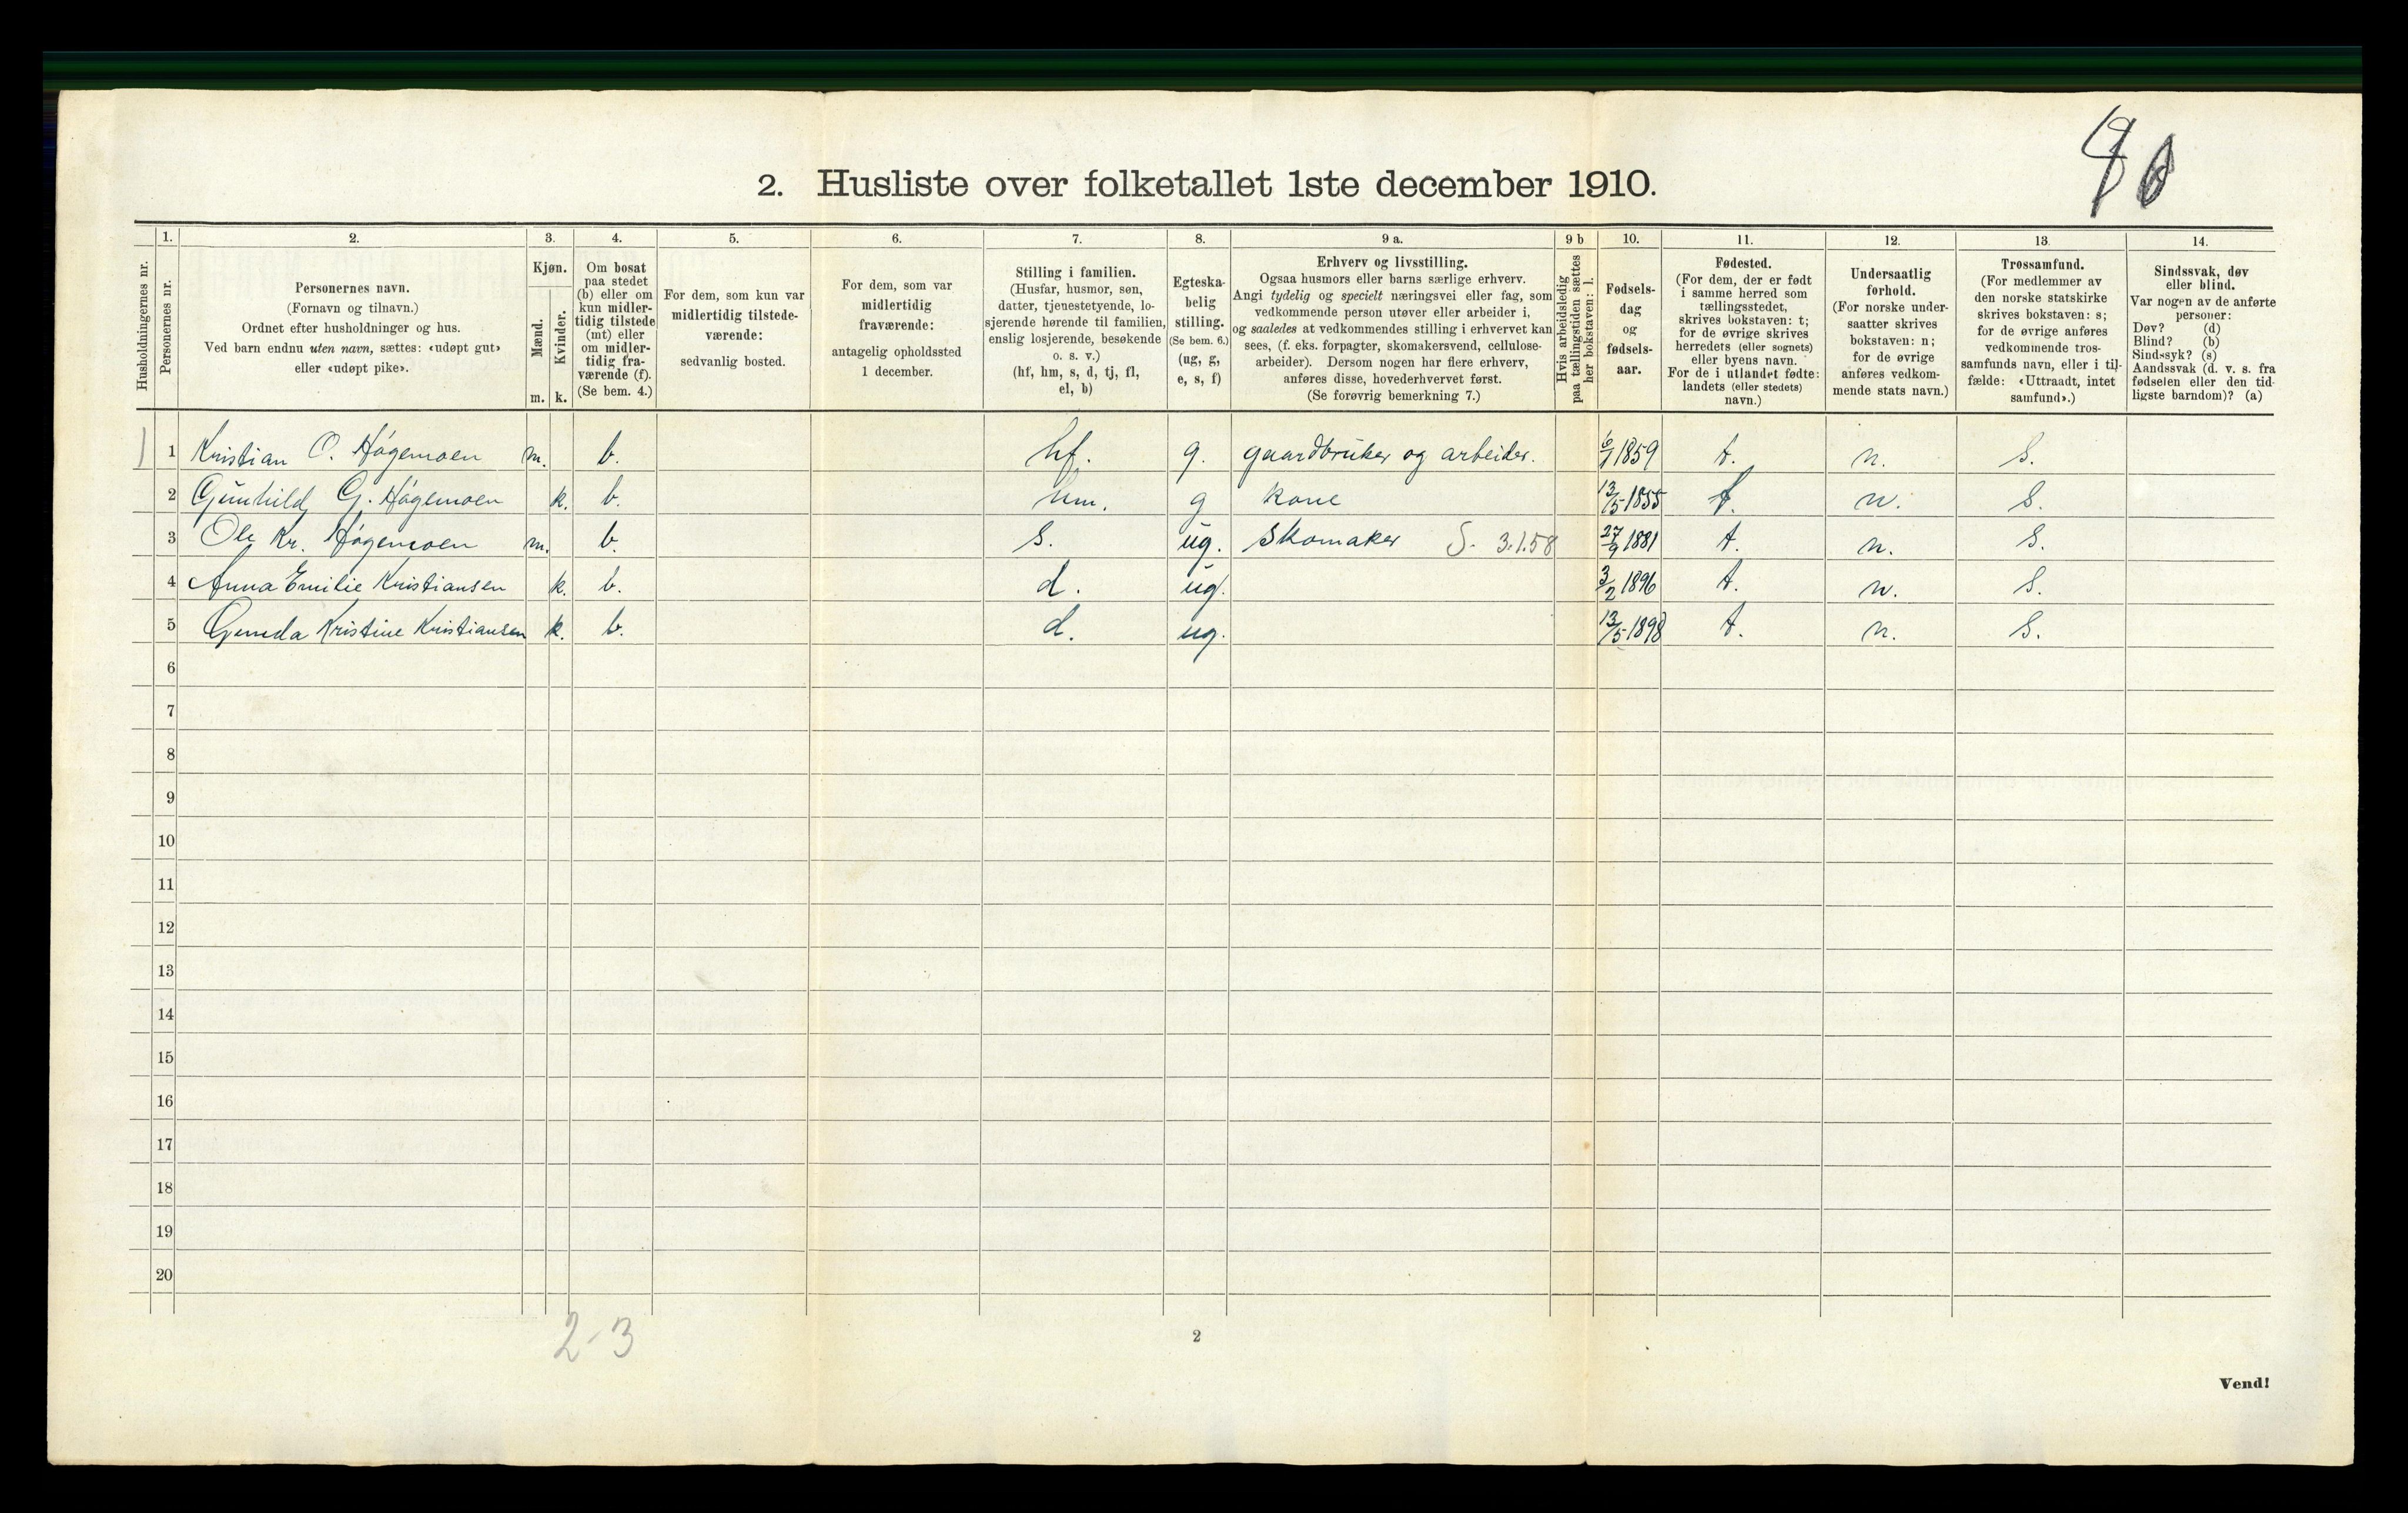 2. Husliste over folketallet 1ste december 1910.
1. 2. 3. 4. 5. 6. 7. 8. 9 a. 9 b 10. 11. 12. 13. 14.
Husholdningernes nr.
Personernes nr.
Personernes navn.
(Fornavn og tilnavn.)
Ordnet efter husholdninger og hus.
Ved barn endnu uten navn, sættes: «udøpt gut»
eller «udøpt pike».
Kjøn.
Mænd.
Kvinder.
m. k.
Om bosat
paa stedet
(b) eller om
kun midler-
tidig tilstede
(mt) eller
om midler-
tidig fra-
værende (f).
(Se bem. 4.)
For dem, som kun var
midlertidig tilstede-
værende:
sedvanlig bosted.
For dem, som var
midlertidig
fraværende:
antagelig opholdssted
1 december.
Stilling i familien.
(Husfar, husmor, søn,
datter, tjenestetyende, lo-
sjerende hørende til familien,
enslig losjerende, besøkende
o. s. v.)
(hf, hm, s, d, tj, fl,
el, b)
Egteska-
belig
stilling.
(Se bem. 6.)
(ug, g,
e, s, f)
Erhverv og livsstilling.
Ogsaa husmors eller barns særlige erhverv.
Angi tydelig og specielt næringsvei eller fag, som
vedkommende person utøver eller arbeider i,
og saaledes at vedkommendes stilling i erhvervet kan
sees, (f. eks. forpagter, skomakersvend, cellulose-
arbeider). Dersom nogen har flere erhverv,
anføres disse, hovederhvervet først.
(Se forøvrig bemerkning 7.)
Hvis arbeidsledig
paa tællingstiden sættes
her bokstaven: l.
Fødsels-
dag
og
fødsels-
aar.
Fødested.
(For dem, der er født
i samme herred som
tællingsstedet,
skrives bokstaven: t;
for de øvrige skrives
herredets (eller sognets)
eller byens navn.
For de i utlandet fødte:
landets (eller stedets)
navn.)
Undersaatlig
forhold.
(For norske under-
saatter skrives
bokstaven: n;
for de øvrige
anføres vedkom-
mende stats navn.)
Trossamfund.
(For medlemmer av
den norske statskirke
skrives bokstaven: s;
for de øvrige anføres
vedkommende tros-
samfunds navn, eller i til-
fælde: «Uttraadt, intet
samfund».)
Sindssvak, døv
eller blind.
Var nogen av de anførte
personer:
Døv? (d)
Blind? (b)
Sindssyk? (s)
Aandssvak (d. v. s. fra
fødselen eller den tid-
ligste barndom)? (a)
1 Kristian O. Høgemoen m. b. hf. g. gaardbruker og arbeider. 6/1 1859 t. n. S.
2 Gunhild G. Høgemoen k. b. hm. g kone 13/5 1855 t. n. S.
3 Ole Kr. Høgemoen m. b. s. ug. Skomaker S. 3.1.58 27/9 1881 t. n. S.
4 Anna Emilie Kristiansen k. b. d. ug. 3/2 1896 t. n. S.
5 Kristine Kristiansen k. b. d. ug. 13/5 1898 t. n. S.
6
7
8
9
10
11
12
13
14
15
16
17
18
19
20
2-3
2
Vend!